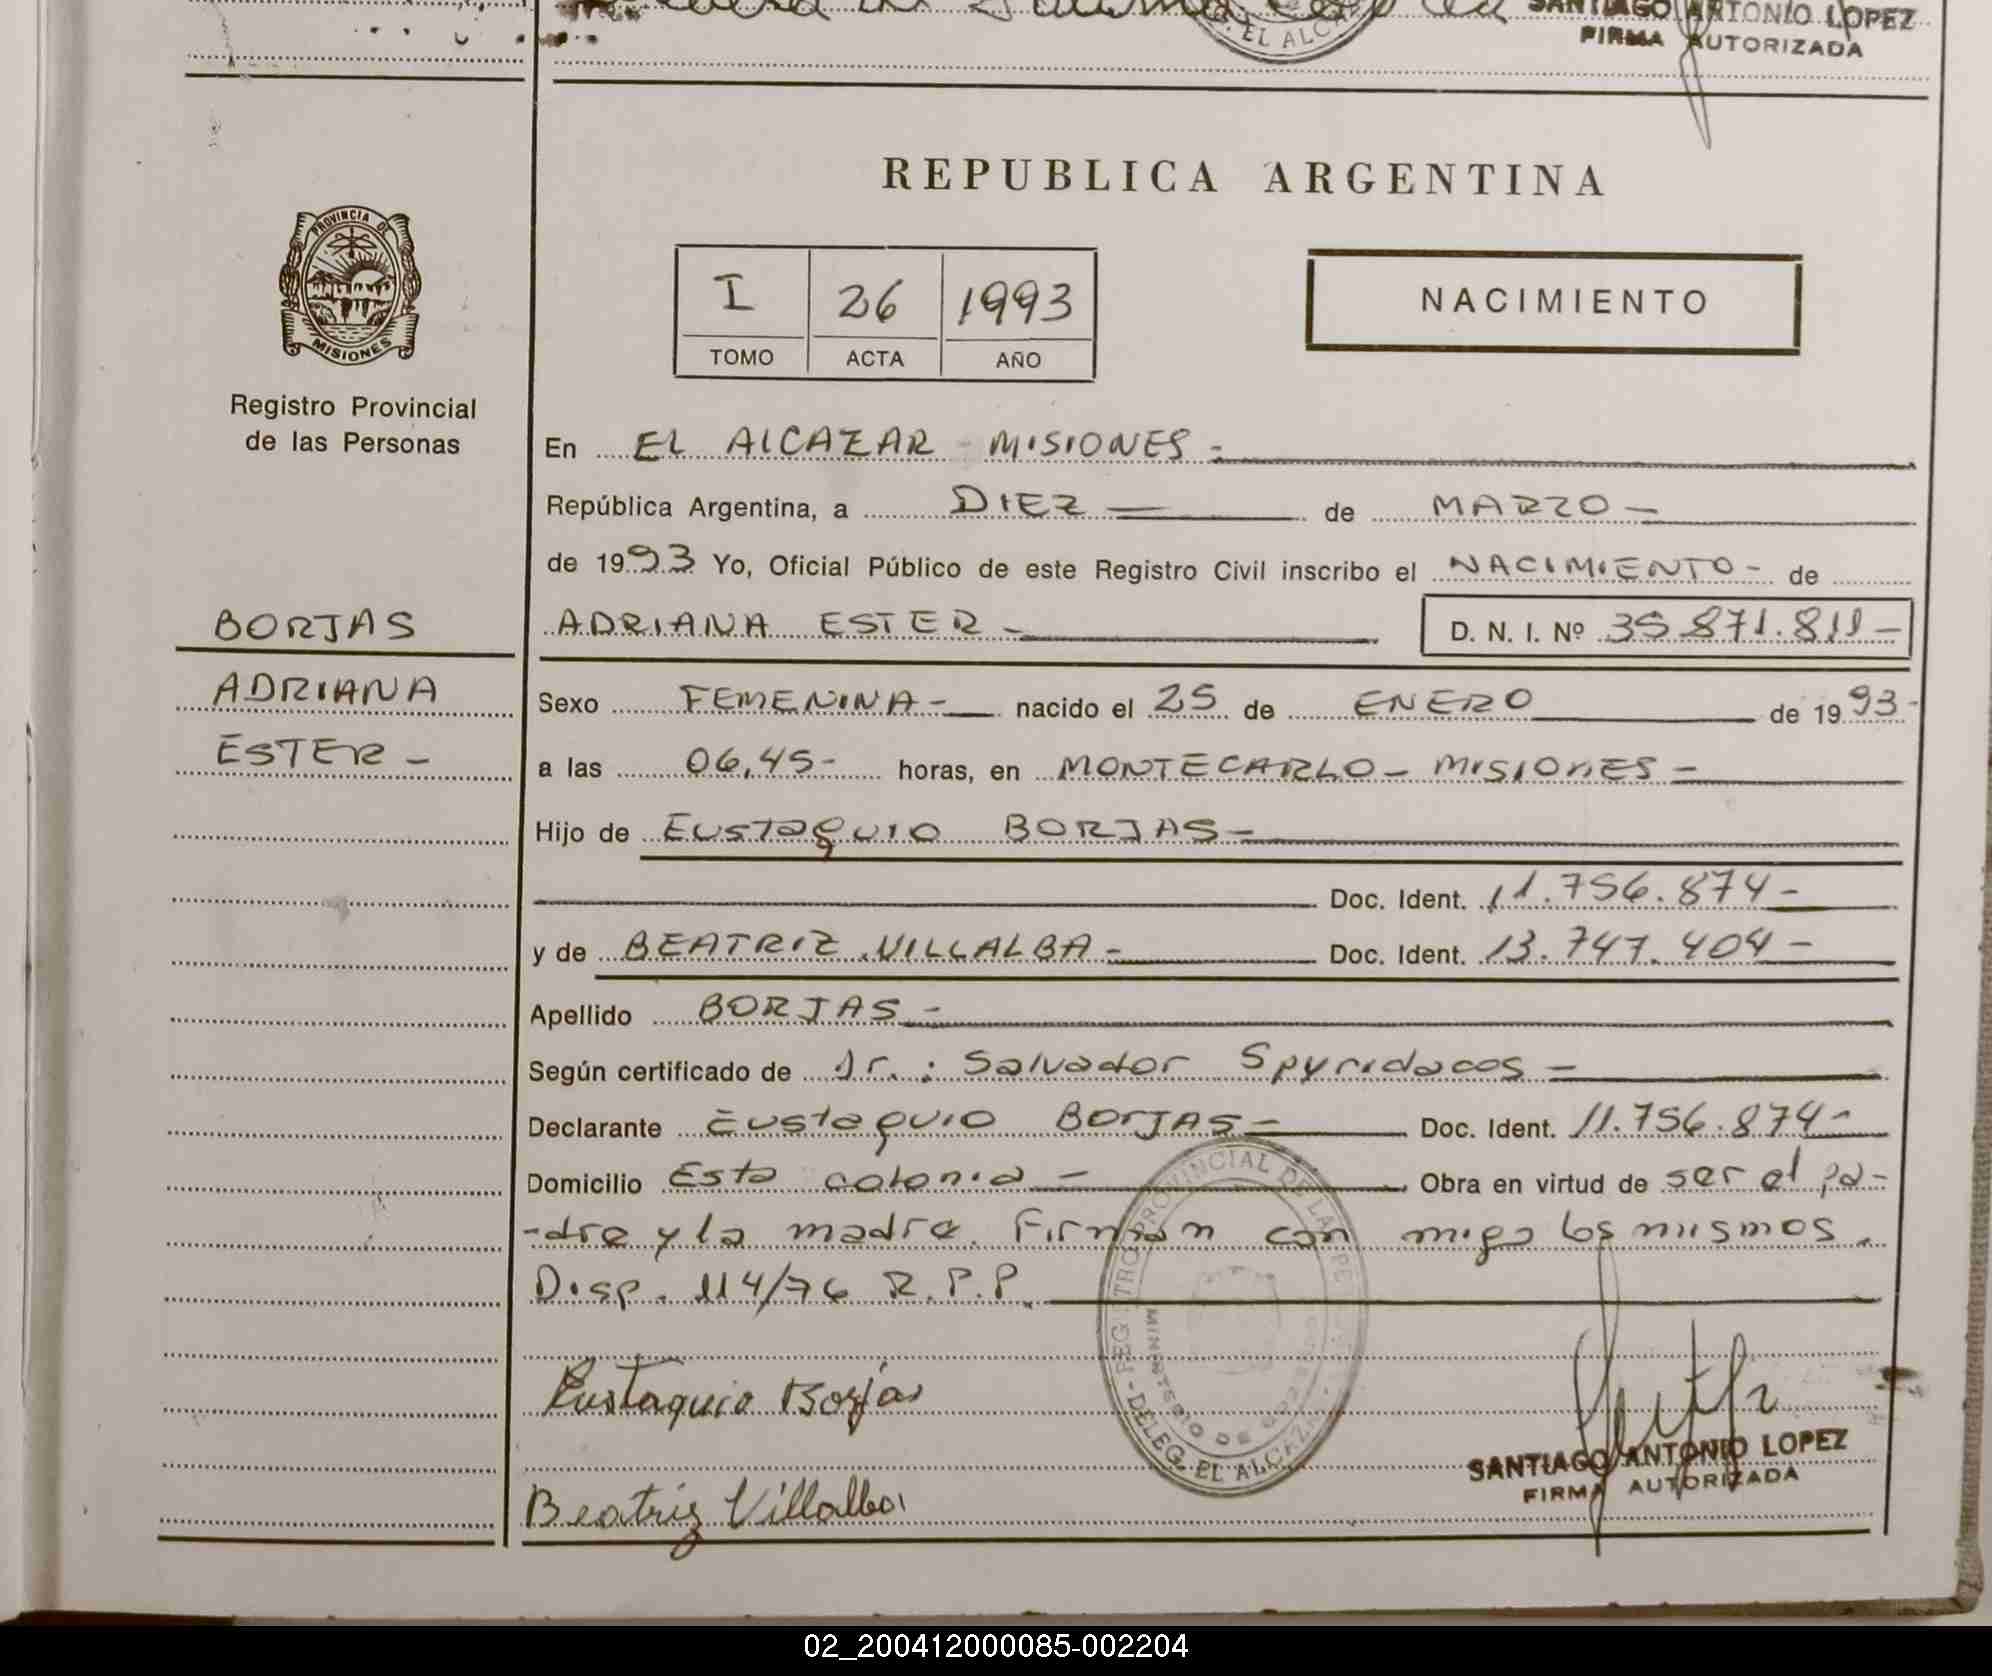 SANTIAGO ANTONIO LOPEZ
FIRMA AUTORIZADA
EL ALCA
REPUBLICA ARGENTINA
PROVINCIA DE
MISIONES
Registro Provincial
de las Personas
I 26 1993
TOMO ACTA AÑO
NACIMIENTO
En EL ALCAZAR - MISIONES -
República Argentina, a DIEZ — de MARZO -
de 1993 Yo, Oficial Público de este Registro Civil inscribo el NACIMIENTO - de
BORJAS
ADRIANA ESTER - D. N. I. Nº 35.871.811 -
ADRIANA
ESTER -
Sexo FEMENINA - nacido el 25 de ENERO de 1993 -
a las 06,45 - horas, en MONTECARLO - MISIONES -
Hijo de EUSTAQUIO BORJAS -
Doc. Ident. 11.756.874 -
y de BEATRIZ VILLALBA - Doc. Ident. 13.747.404 -
Apellido BORJAS -
Según certificado de Dr.: Salvador Spyridacos -
Declarante Eustaquio BORJAS - Doc. Ident. 11.756.874 -
Domicilio Esta colonia - Obra en virtud de ser el pa-
-dre y la madre. Firman con migo los mismos.
Disp. 114/76 R.P.P.
Eustaquio Borjas
Beatriz Villalba
REGISTRO PROVINCIAL DE LAS PE
MINISTERIO DE GOB
DELEG. EL ALCAZA
SANTIAGO ANTONIO LOPEZ
FIRMA AUTORIZADA
02_200412000085-002204